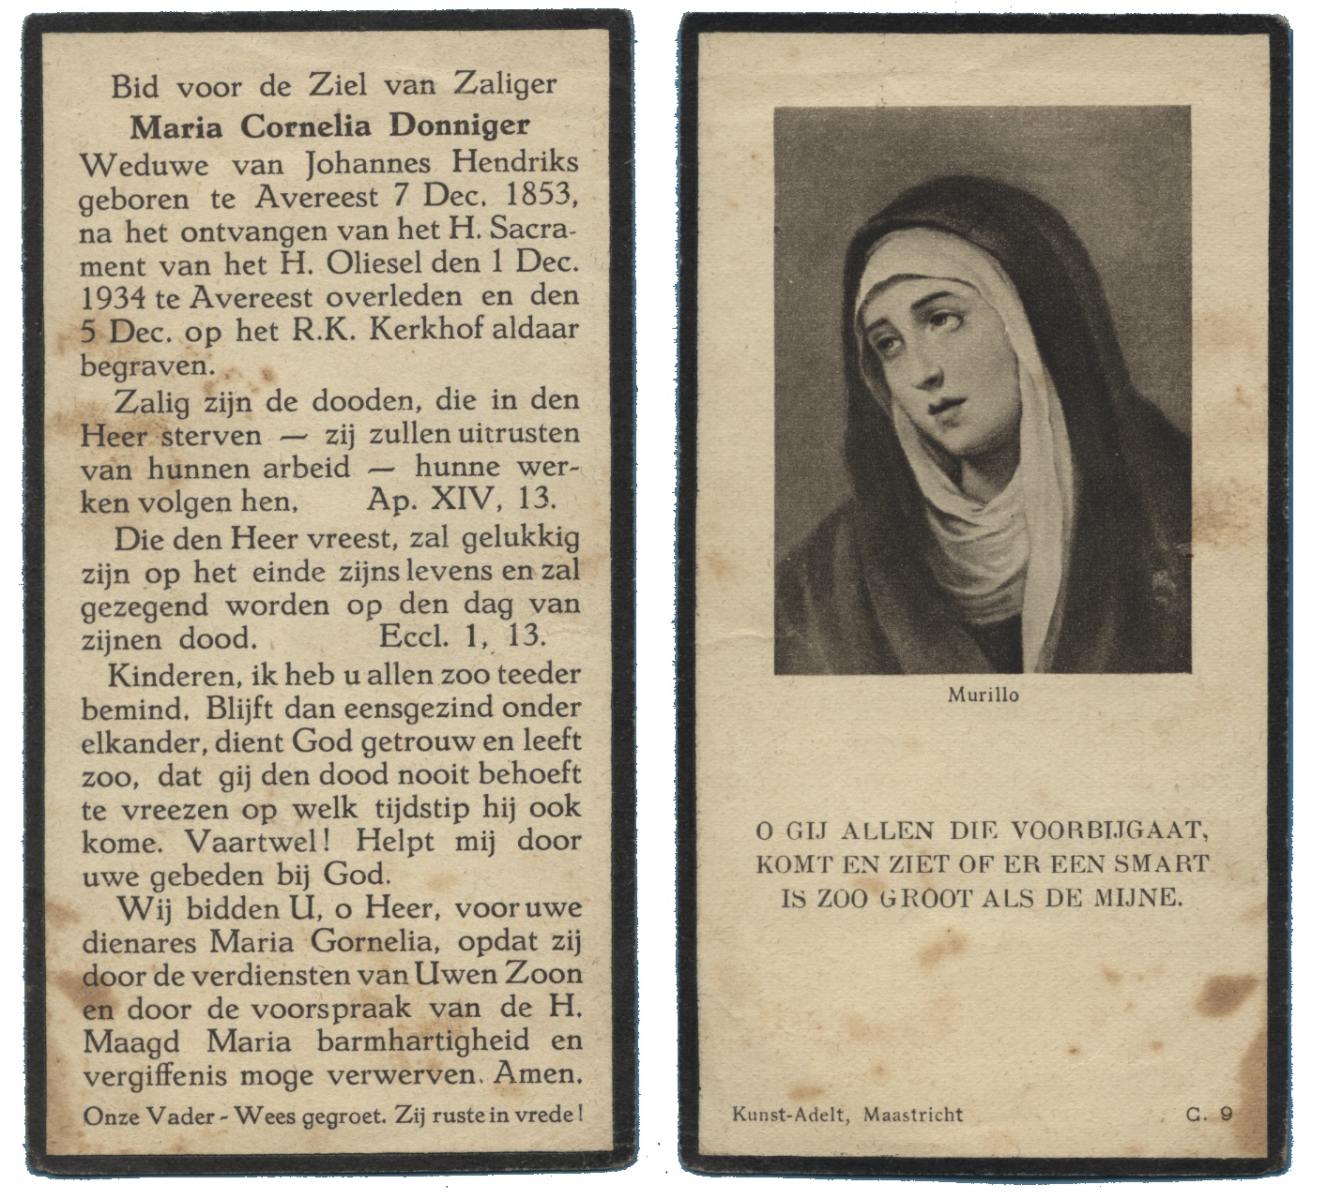 Bid voor de Ziel van Zaliger
Maria Cornelia Donniger
Weduwe van Johannes Hendriks
geboren te Avereest 7 Dec. 1853,
na het ontvangen van het H. Sacra-
ment van het H. Oliesel den 1 Dec.
1934 te Avereest overleden en den
5 Dec. op het R.K. Kerkhof aldaar
begraven.
Zalig zijn de dooden, die in den
Heer sterven — zij zullen uitrusten
van hunnen arbeid — hunne wer-
ken volgen hen, Ap. XIV, 13.
Die den Heer vreest, zal gelukkig
zijn op het einde zijns levens en zal
gezegend worden op den dag van
zijnen dood. Eccl. 1, 13.
Kinderen, ik heb u allen zoo teeder
bemind. Blijft dan eensgezind onder
elkander, dient God getrouw en leeft
zoo, dat gij den dood nooit behoeft
te vreezen op welk tijdstip hij ook
kome. Vaartwel! Helpt mij door
uwe gebeden bij God.
Wij bidden U, o Heer, voor uwe
dienares Maria Gornelia, opdat zij
door de verdiensten van Uwen Zoon
en door de voorspraak van de H.
Maagd Maria barmhartigheid en
vergiffenis moge verwerven. Amen.
Onze Vader - Wees gegroet. Zij ruste in vrede!
Murillo
O GIJ ALLEN DIE VOORBIJGAAT,
KOMT EN ZIET OF ER EEN SMART
IS ZOO GROOT ALS DE MIJNE.
Kunst-Adelt, Maastricht G. 9